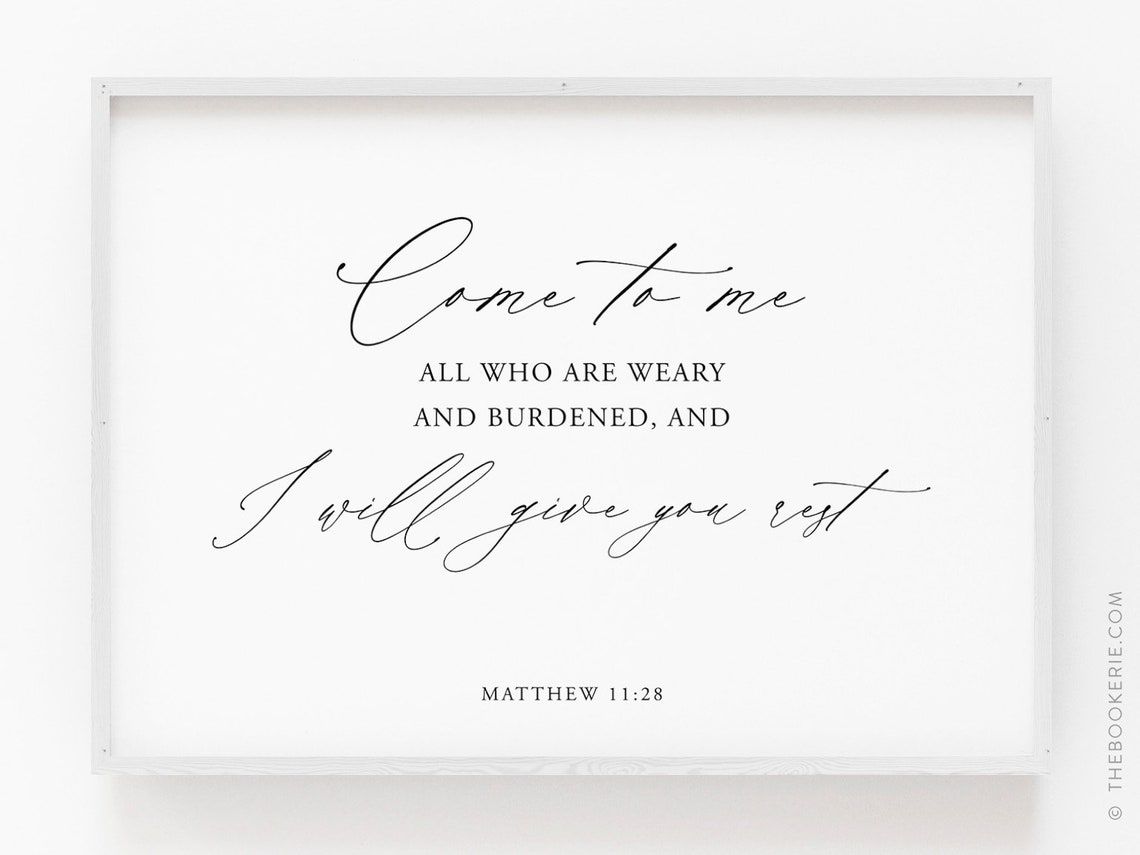 Come to me
ALL WHO ARE WEARY
AND BURDENED, AND
I will give you rest
MATTHEW 11:28
© THEBOOKERIE.COM